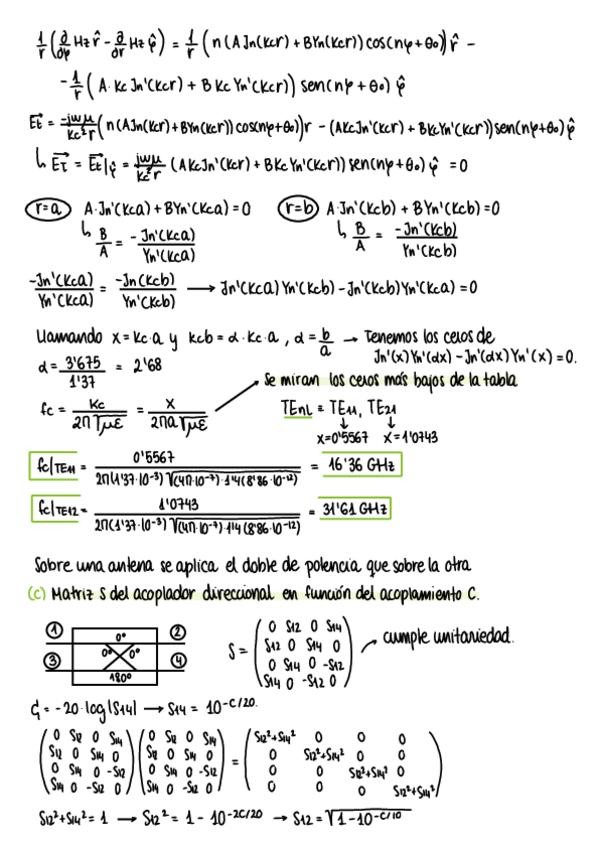 1/r (∂/∂φ Hz r̂ - ∂/∂r Hz φ̂) = 1/r (n(AJn(Kcr) + BYn(Kcr)) cos(nφ + θ₀)) r̂ -
- 1/r (A·Kc Jn'(Kcr) + B Kc Yn'(Kcr)) sen(nφ + θ₀) φ̂
Et = -jωμ/Kc²r (n(AJn(Kcr) + BYn(Kcr)) cos(nφ+θ₀))r - (AKcJn'(Kcr) + BKcYn'(Kcr)) sen(nφ+θ₀) φ̂
↳ Eτ = Et|φ̂ = jωμ/Kc²r (AKcJn'(Kcr) + BKcYn'(Kcr)) sen(nφ+θ₀) φ̂ = 0
r=a A·Jn'(Kca) + BYn'(Kca) = 0 r=b A·Jn'(Kcb) + BYn'(Kcb) = 0
↳ B/A = -Jn'(Kca)/Yn'(Kca) ↳ B/A = -Jn'(Kcb)/Yn'(Kcb)
-Jn'(Kca)/Yn'(Kca) = -Jn(Kcb)/Yn'(Kcb) → Jn'(Kca) Yn'(Kcb) - Jn'(Kcb) Yn'(Kca) = 0
Llamando x = Kc·a y Kcb = α·Kc·a, α = b/a → Tenemos los ceros de
Jn'(x)Yn'(αx) - Jn'(αx)Yn'(x) = 0.
α = 3'675/1'37 = 2'68
Se miran los ceros más bajos de la tabla
fc = Kc/2π√με = x/2πa√με
TEnL = TE11, TE21
↓ ↓
x=0'5567 x=1'0743
fc|TE11 = 0'5567/2π(1'37·10⁻³)√(4π·10⁻⁷)·1'4(8'86·10⁻¹²) = 16'36 GHz
fc|TE12 = 1'0743/2π(1'37·10⁻³)√(4π·10⁻⁷)·1'4(8'86·10⁻¹²) = 31'61 GHz
Sobre una antena se aplica el doble de potencia que sobre la otra
(c) Matriz S del acoplador direccional en función del acoplamiento C.
① 0° ②
0° 0°
③ 180° ④
S = (0 S12 0 S14
S12 0 S14 0
0 S14 0 -S12
S14 0 -S12 0) cumple unitariedad.
C = -20·log|S14| → S14 = 10^-C/20.
(0 S12 0 S14 (0 S12 0 S14 (S12²+S14² 0 0 0
S12 0 S14 0 S12 0 S14 0 0 S12²+S14² 0 0
0 S14 0 -S12 0 S14 0 -S12 = 0 0 S12²+S14² 0
S14 0 -S12 0) S14 0 -S12 0) 0 0 0 S12²+S14²)
S12²+S14² = 1 → S12² = 1 - 10^-2C/20 → S12 = √1-10^-C/10